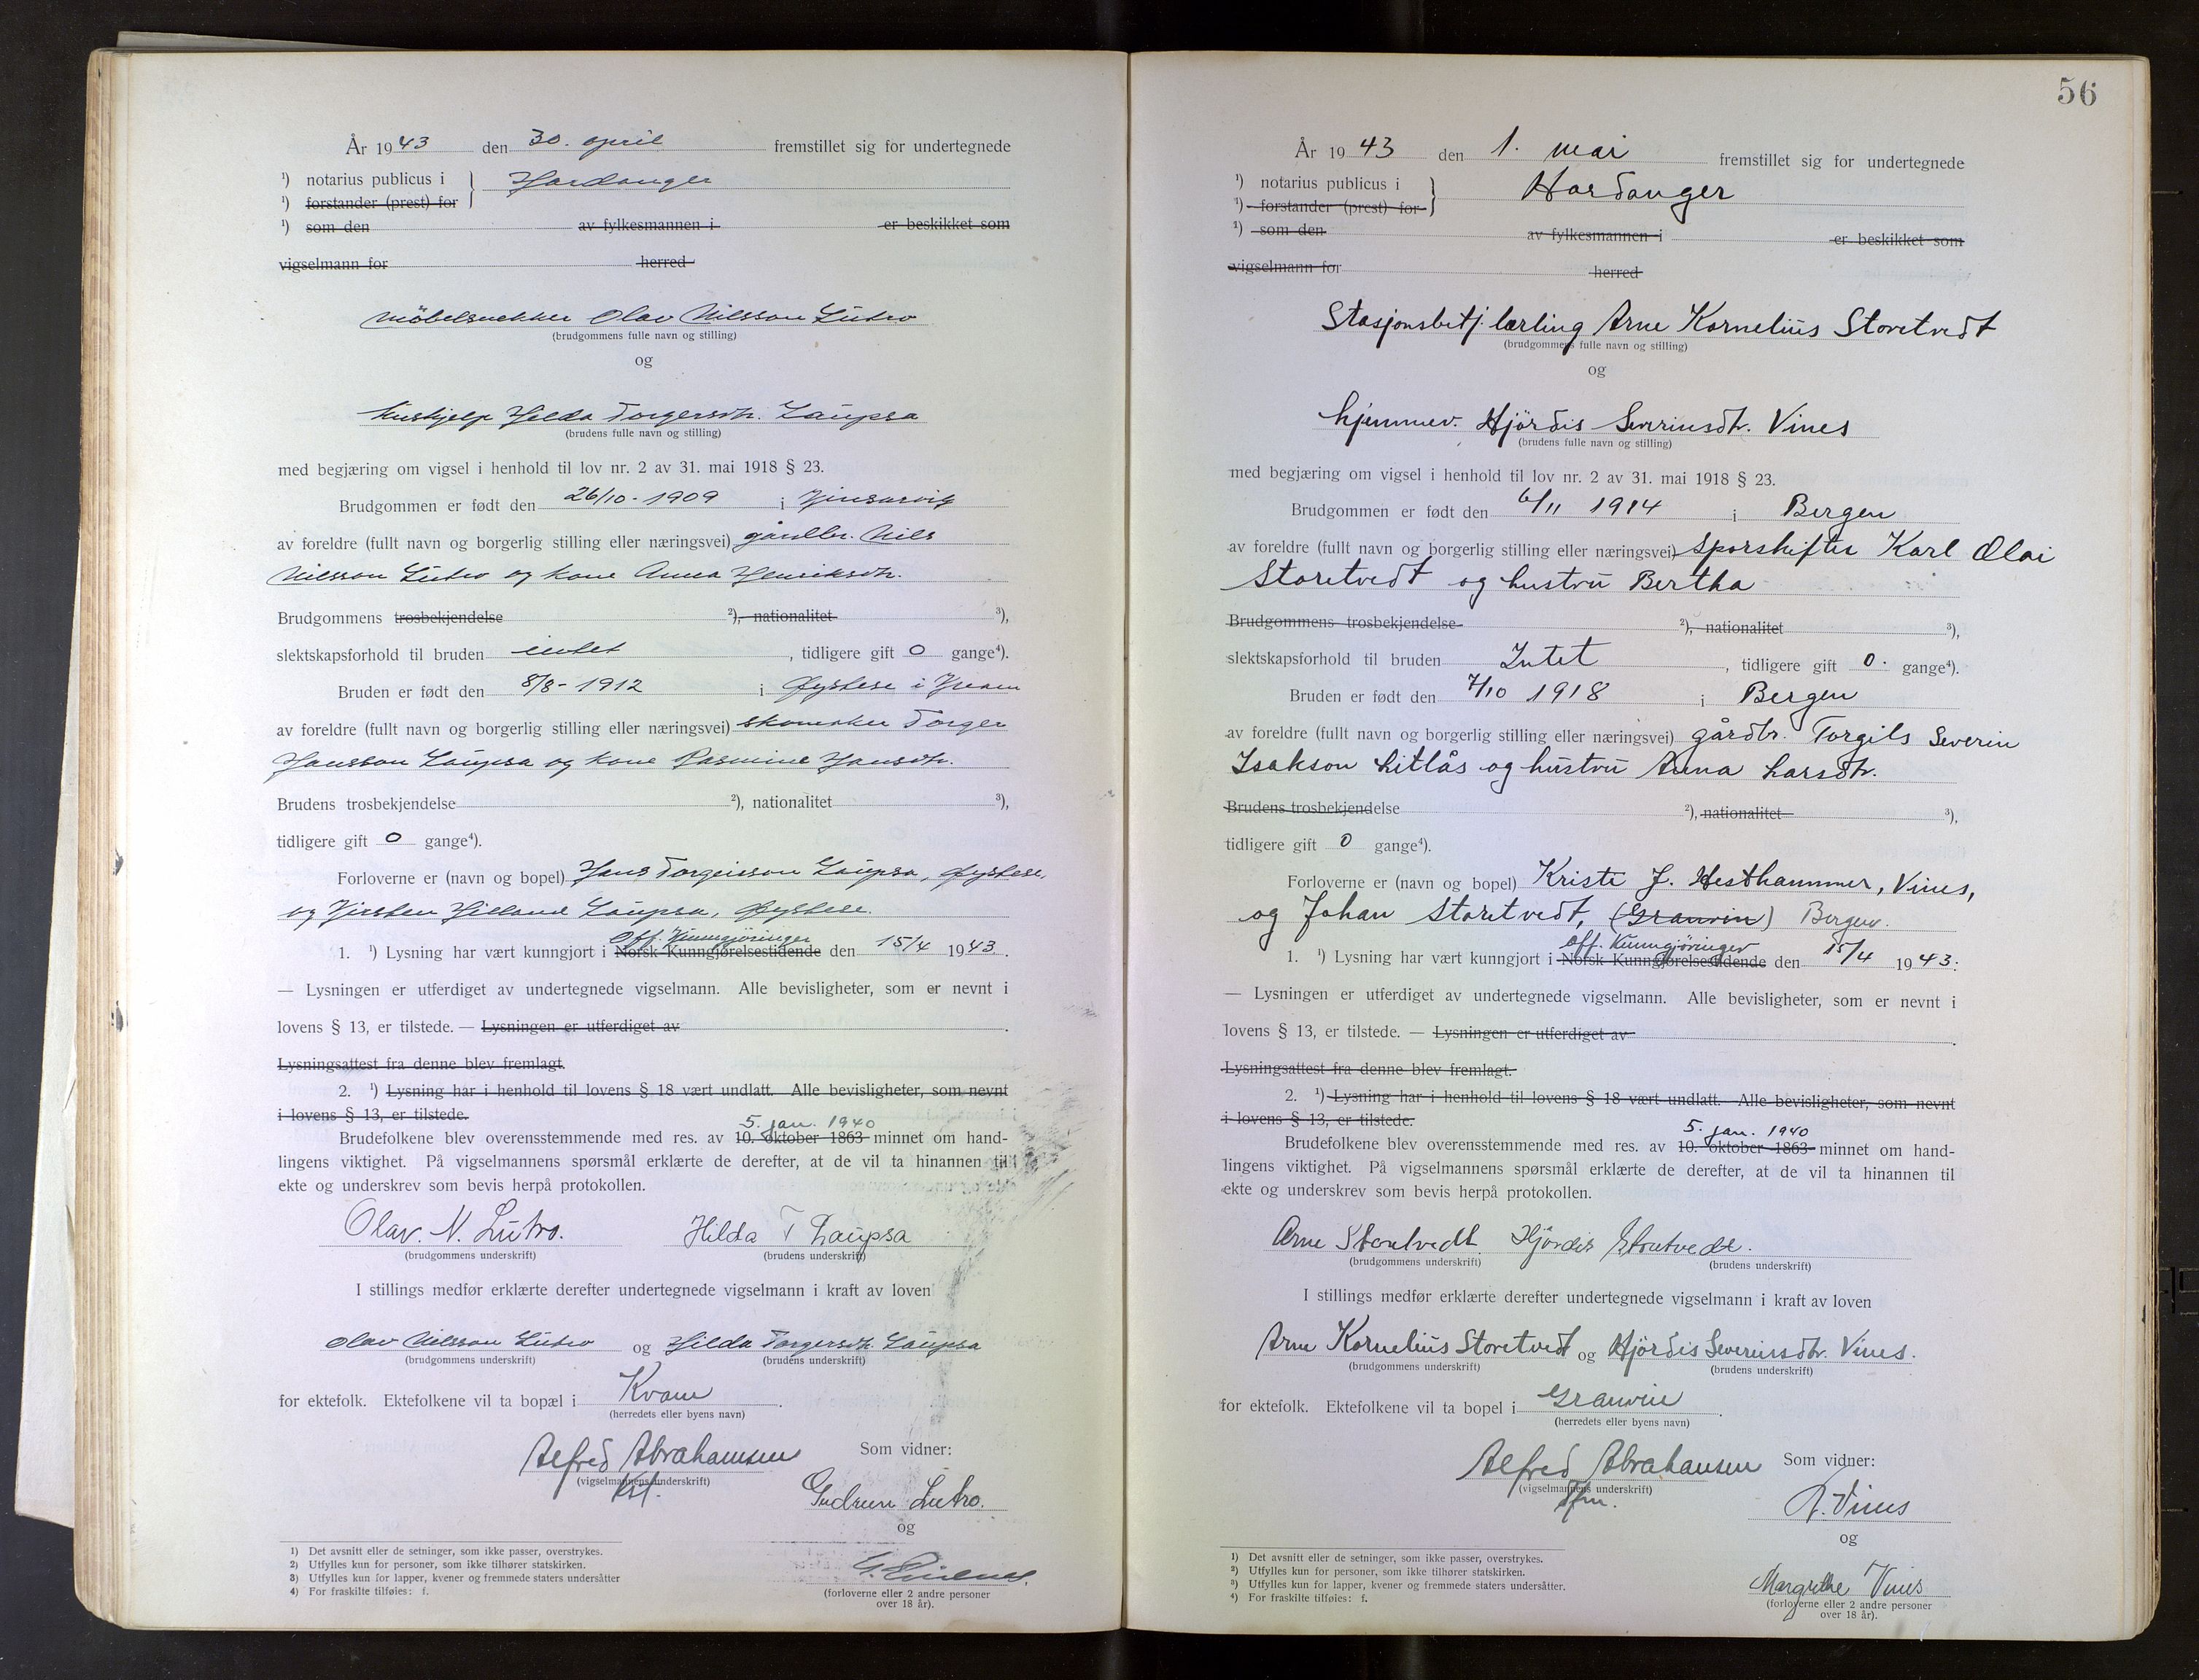 År 1943 den 30. april fremstillet sig for undertegnede
¹) notarius publicus i } Hardanger
¹) forstander (prest) for
¹) som den av fylkesmannen i er beskikket som
vigselmann for herred
möbelsnekker Olav Nilsson Lutro
(brudgommens fulle navn og stilling)
og
hushjelp Hilda Torgersdtr. Laupsa
(brudens fulle navn og stilling)
med begjæring om vigsel i henhold til lov nr. 2 av 31. mai 1918 § 23.
Brudgommen er født den 26/10-1909 i Kinsarvik
av foreldre (fullt navn og borgerlig stilling eller næringsvei) gårdbr. Nils
Nilsson Lutro og kone Anna Henriksdtr.
Brudgommens trosbekjendelse ²), nationalitet ³),
slektskapsforhold til bruden intet, tidligere gift 0 gange⁴).
Bruden er født den 8/8-1912 i Øystese i Kvam
av foreldre (fullt navn og borgerlig stilling eller næringsvei) skomaker Torger
Hansson Laupsa og kone Rasmine Hansdtr.
Brudens trosbekjendelse ²), nationalitet ³),
tidligere gift 0 gange⁴).
Forloverne er (navn og bopel) Hans Torgeirsson Laupsa, Øystese,
og Kirsten Laupsa, Øystese.
off. Kunngjöringer
1. ¹) Lysning har vært kunngjort i Norsk Kunngjørelsestidende den 15/4 1943.
— Lysningen er utferdiget av undertegnede vigselmann. Alle bevisligheter, som er nevnt i
lovens § 13, er tilstede. — Lysningen er utferdiget av .
Lysningsattest fra denne blev fremlagt.
2. ¹) Lysning har i henhold til lovens § 18 vært undlatt. Alle bevisligheter, som nevnt
i lovens § 13, er tilstede.
5. jan. 1940
Brudefolkene blev overensstemmende med res. av 10. oktober 1863 minnet om hand-
lingens viktighet. På vigselmannens spørsmål erklærte de derefter, at de vil ta hinannen til
ekte og underskrev som bevis herpå protokollen.
Olav. N. Lutro. Hilda T Laupsa
(brudgommens underskrift) (brudens underskrift)
I stillings medfør erklærte derefter undertegnede vigselmann i kraft av loven
Olav Nilsson Lutro og Hilda Torgersdtr. Laupsa
(brudgommens underskrift) (brudens underskrift)
for ektefolk. Ektefolkene vil ta bopæl i Kvam.
(herredets eller byens navn)
Alfred Abrahamsen Som vidner:
(vigselmannens underskrift)
Kst.
Gudrun Lutro.
og
(forloverne eller 2 andre personer
over 18 år).
1) Det avsnitt eller de setninger, som ikke passer, overstrykes.
2) Utfylles kun for personer, som ikke tilhører statskirken.
3) Utfylles kun for lapper, kvener og fremmede staters undersåtter
4) For fraskilte tilføies: f.
56
År 1943 den 1. mai fremstillet sig for undertegnede
¹) notarius publicus i } Hardanger
¹) forstander (prest) for
¹) som den av fylkesmannen i er beskikket som
vigselmann for herred
Stasjonsbetj. lærling Arne Kornelius Storetvedt
(brudgommens fulle navn og stilling)
og
hjemmev. Hjördis Severinsdtr. Vines
(brudens fulle navn og stilling)
med begjæring om vigsel i henhold til lov nr. 2 av 31. mai 1918 § 23.
Brudgommen er født den 6/11 1914 i Bergen
av foreldre (fullt navn og borgerlig stilling eller næringsvei) Sporskifter Karl Olai
Storetvedt og hustru Bertha
Brudgommens trosbekjendelse ²), nationalitet ³),
slektskapsforhold til bruden Intet, tidligere gift 0. gange⁴).
Bruden er født den 7/10 1918 i Bergen
av foreldre (fullt navn og borgerlig stilling eller næringsvei) gårdbr. Torgils Severin
Isakson Litlås og hustru Anna Larsdtr.
Brudens trosbekjendelse ²), nationalitet ³),
tidligere gift 0 gange⁴).
Forloverne er (navn og bopel) Kristi J. Hesthammer, Vines,
og Johan Storetvedt, (Granvin) Bergen.
off. Kunngjöringer
1. ¹) Lysning har vært kunngjort i Norsk Kunngjørelsestidende den 15/4 1943:
— Lysningen er utferdiget av undertegnede vigselmann. Alle bevisligheter, som er nevnt i
lovens § 13, er tilstede. — Lysningen er utferdiget av .
Lysningsattest fra denne blev fremlagt.
2. ¹) Lysning har i henhold til lovens § 18 vært undlatt. Alle bevisligheter, som nevnt
i lovens § 13, er tilstede.
5. jan. 1940
Brudefolkene blev overensstemmende med res. av 10. oktober 1863 minnet om hand-
lingens viktighet. På vigselmannens spørsmål erklærte de derefter, at de vil ta hinannen til
ekte og underskrev som bevis herpå protokollen.
Arne Storetvedt Hjördis Storetvedt.
(brudgommens underskrift) (brudens underskrift)
I stillings medfør erklærte derefter undertegnede vigselmann i kraft av loven
Arne Kornelius Storetvedt og Hjördis Severinsdtr. Vines.
(brudgommens underskrift) (brudens underskrift)
for ektefolk. Ektefolkene vil ta bopel i Granvin.
(herredets eller byens navn)
Alfred Abrahamsen Som vidner:
(vigselmannens underskrift)
Vines
og
Margrethe Vines
(forloverne eller 2 andre personer
over 18 år).
1) Det avsnitt eller de setninger, som ikke passer, overstrykes.
2) Utfylles kun for personer, som ikke tilhører statskirken.
3) Utfylles kun for lapper, kvener og fremmede staters undersåtter.
4) For fraskilte tilføies: f.